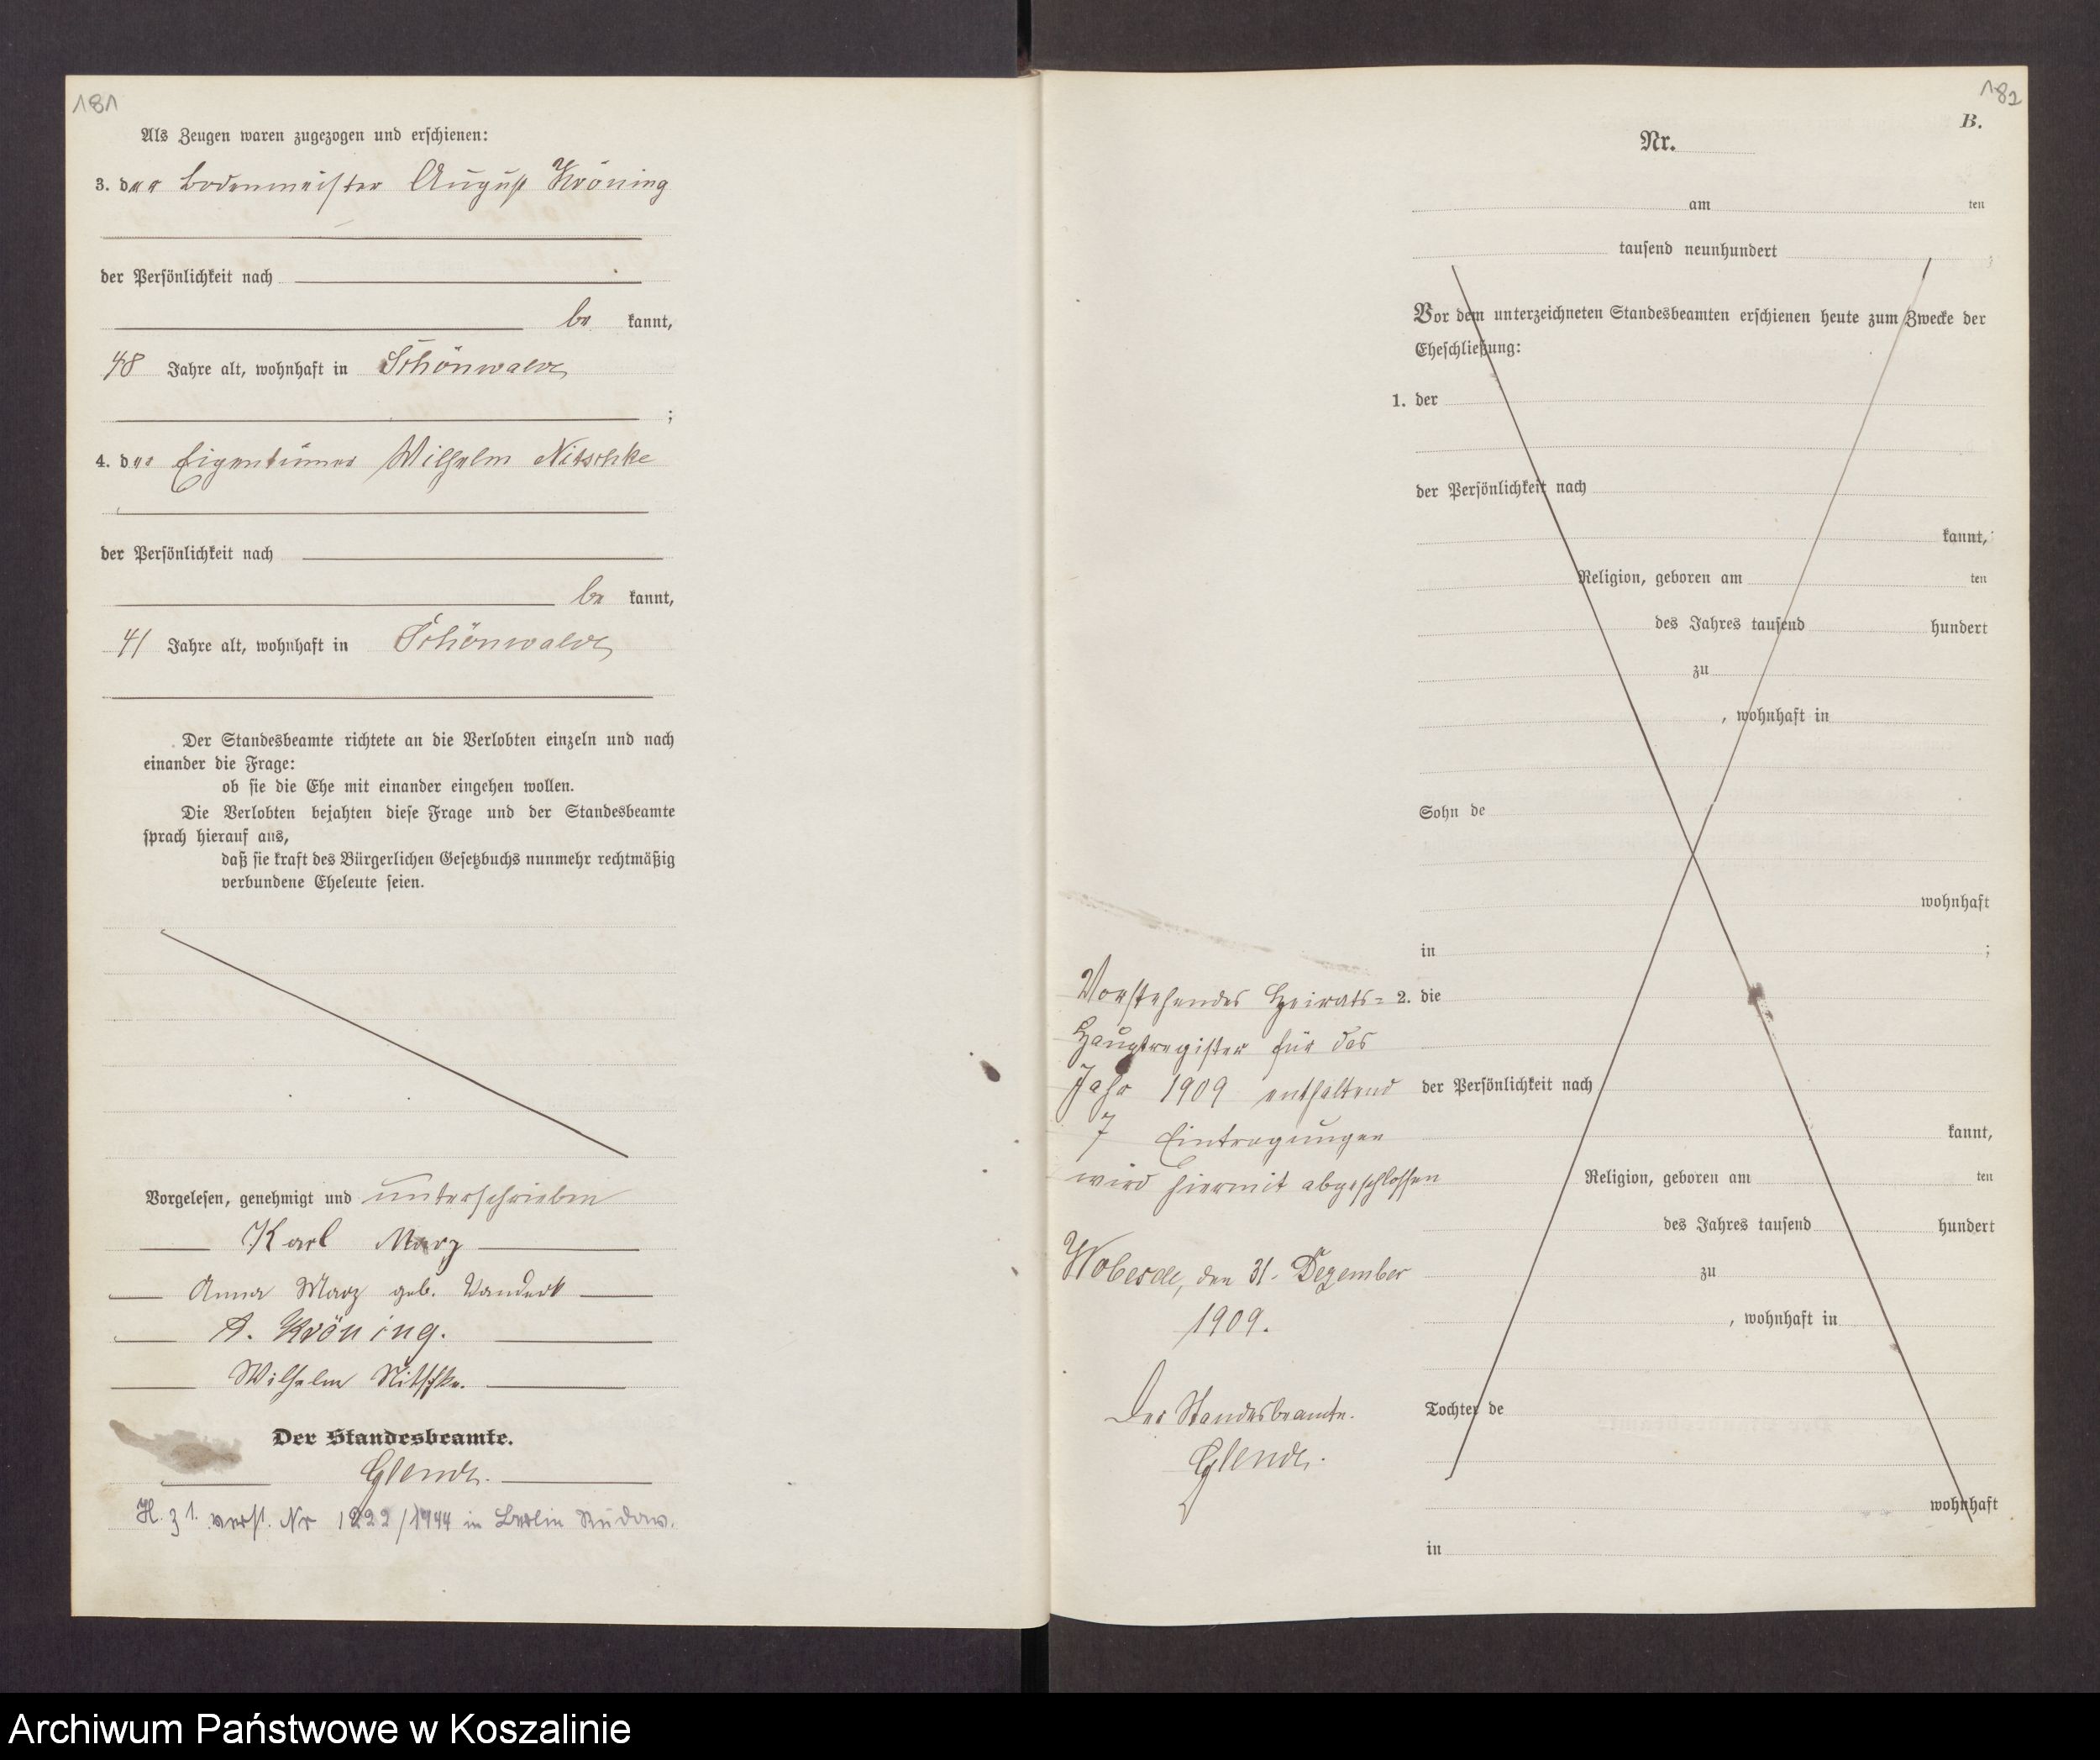 181
Als Zeugen waren zugezogen und erschienen:
3. der Bodenmeister August Kröning
der Persönlichkeit nach
be kannt,
48 Jahre alt, wohnhaft in Schönwalde
;
4. der Eigentümer Wilhelm Nitschke
der Persönlichkeit nach
be kannt,
41 Jahre alt, wohnhaft in Schönwalde
Der Standesbeamte richtete an die Verlobten einzeln und nach
einander die Frage:
ob sie die Ehe mit einander eingehen wollen.
Die Verlobten bejahten diese Frage und der Standesbeamte
sprach hierauf aus,
daß sie kraft des Bürgerlichen Gesetzbuchs nunmehr rechtmäßig
verbundene Eheleute seien.
Vorgelesen, genehmigt und unterschrieben
Karl Marz
Anna Marz geb.
A. Kröning.
Wilhelm Nitschke.
Der Standesbeamte.
Glende.
H. z 1. verst. Nr 1222/1944 in Berlin Rudow.
182
B.
Nr.
am ten
tausend neunhundert
Vor dem unterzeichneten Standesbeamten erschienen heute zum Zwecke der
Eheschließung:
1. der
der Persönlichkeit nach
kannt,
Religion, geboren am ten
des Jahres tausend hundert
zu
, wohnhaft in
Sohn de
wohnhaft
in ;
2. die
der Persönlichkeit nach
kannt,
Religion, geboren am ten
des Jahres tausend hundert
zu
, wohnhaft in
Tochter de
wohnhaft
in
Vorstehendes Heirats=
Hauptregister für das
Jahr 1909 enthaltend
7 Eintragungen
wird hiermit abgeschlossen
Wobesde, den 31. Dezember
1909.
Der Standesbeamte.
Glende.
Archiwum Państwowe w Koszalinie